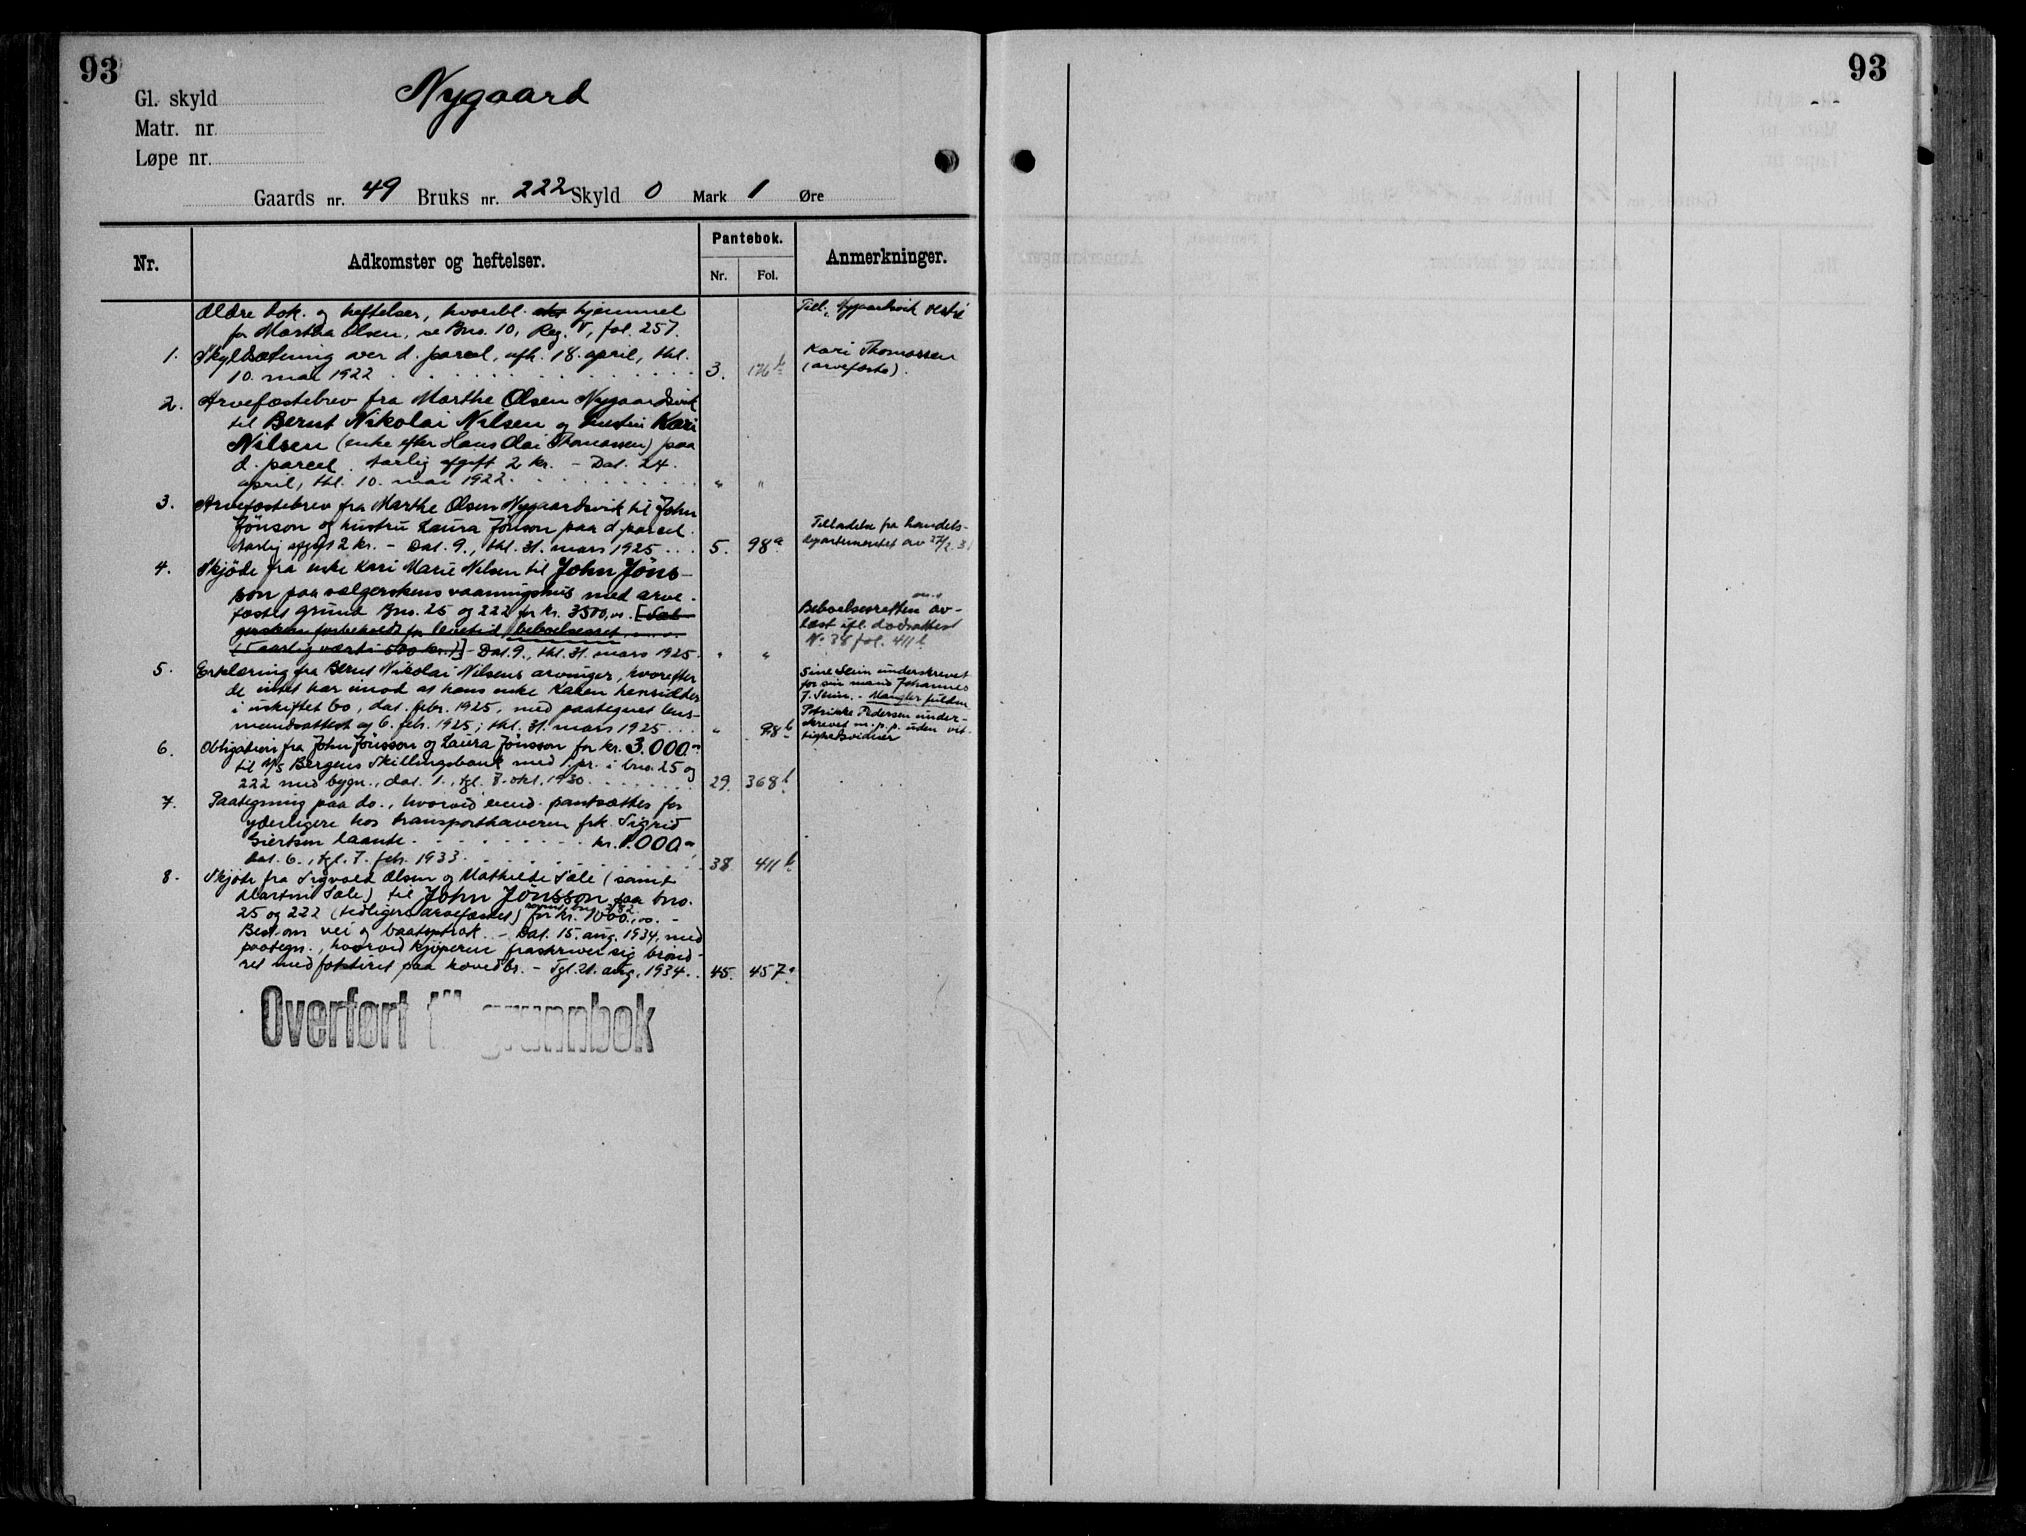 93
Nygaard
Gl. skyld
Matr. nr.
Løpe nr.
Gaards nr. 49 Bruks nr. 222 Skyld 0 Mark 1 Øre
Nr. Adkomster og heftelser. Pantebok. Nr. Fol. Anmerkninger.
Ældre dok. og heftelser, hvoribl. hjemmel Till. Nygaardsvik vestre
for Martha Olsen, se Bno. 10, Reg. V, fol. 257.
1. Skyldsætning over d. parcel, afh. 18. april, thl. Kari Thomassen
10. mai 1922 3. 176 b (arvefæste).
2. Arvefæstebrev fra Marthe Olsen Nygaardsvik
til Bernt Nikolai Nilsen og hustru Kari
Nilsen (enke efter Hans Olai Thomassen) paa
d. parcel. Aarlig afgift 2 kr. – Dat. 24.
april, thl. 10. mai 1922. " "
3. Arvefæstebrev fra Marthe Olsen Nygaardsvik til John
Jönson og hustru Laura Jönson paa d. parcel. Tilladelse fra handels-
Aarlig afgift 2 kr. – Dat. 9., thl. 31. mars 1925 5. 98 a departementet av 27/2
4. Skjöde fra enke Kari Marie Nilsen til John Jöns-
son paa sælgerskens vaaningshus med arve-
fæstet grund Bno. 25 og 222 for kr. 3500,00. [Sæl- Beboelsesretten av-
gersken forbeholdt for levetid beboelsesret læst ifl. dødsattest
(5 aarlig værdi 500 kr.)] – Dat. 9., thl. 31. mars 1925. " " No 38 fol. 411 b
5. Erklæring fra Bernt Nikolai Nilsens arvinger, hvorefter underskrevet
de intet har imod at hans enke Karen hensidder for sin mand Johannes
i uskiftet bo, dat. febr. 1925, med paategnet lens- Mangler fuldm.
mandsattest og 6. feb. 1925; thl. 31. mars 1925 " 98 b Petrikke Pedersen under-
skrevet m. p. p. uden vit-
tighedsvidner
6. Obligation fra John Jönsson og Laura Jönsson for kr. 3.000.–
til A/S Bergens Skillingsbank med 1. pr. i bno. 25 og
222 med bygn., dat. 1., tgl. 3. okt. 1930. 29. 368 b
7. Paategning paa do., hvorved eiend. pantsættes for
yderligere hos transporthaveren frk. Sigrid
Giertsen laante kr. 1.000.–
Dat. 6., tgl. 7. feb. 1933. 38 411 b
8. Skjöte fra Sigvald Olsen og Mathilde Sæle (samt
Martin Sæle) til John Jönsson paa bno.
25 og 222 (tidligere arvefæstet) samt bno 282 for kr. 1000,00. –
Best. om vei og baatoptræk. – Dat. 15. aug. 1934, med
paategn., hvorved kjöperen fraskriver sig brönd-
ret med fotstiret paa hovedbr. – Tgl. 21. aug. 1934. 45. 457 a
Overført til grunnbok
93